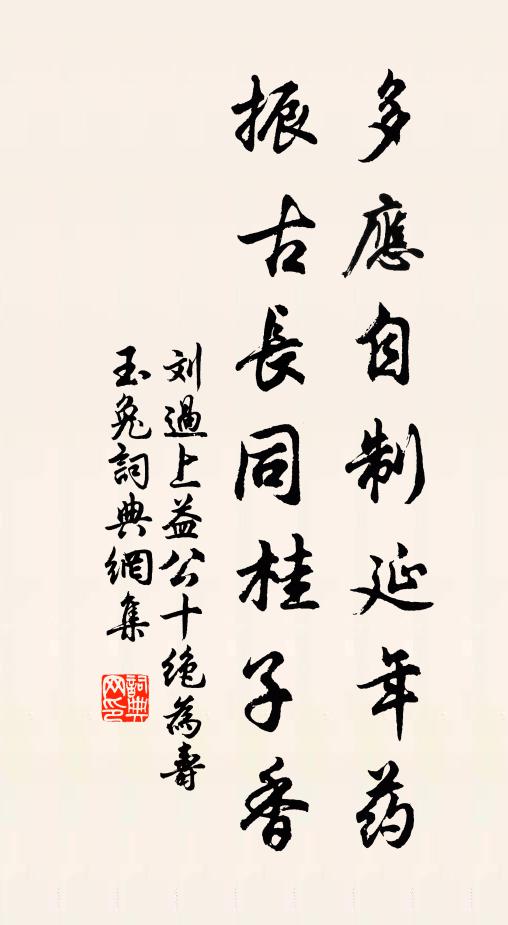 多應自制延年药
振古長同桂子香
刘過上益公十绝為壽
玉兔詞典網集
詞典网印